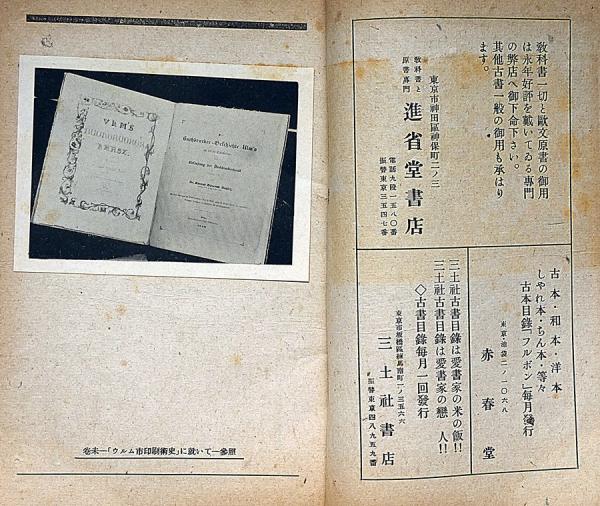 教科書一切と歐文原書の御用
は永年好評を戴いてゐる專門
の弊店へ御下命下さい。
其他古書一般の御用も承はり
ます。
東京市神田區神保町二ノ三
教科書と
原書專門
進省堂書店
電話九段一五八〇番
振替東京三五四七番
古本・和本・洋本
しやれ本・ちん本・等々
古本目錄「フルボン」每月發行
東京・池袋二ノ一〇六八
赤春堂
三土社古書目錄は愛書家の米の飯!!
三土社古書目錄は愛書家の戀人!!
◇古書目錄每月一回發行
東京市板橋區練馬南町一ノ三五六六
三土社書店
振替東京四八九五九番
VLM'S
Buchdrucker-Geschichte Ulm's
卷末—「ウルム市印刷術史」に就いて—參照